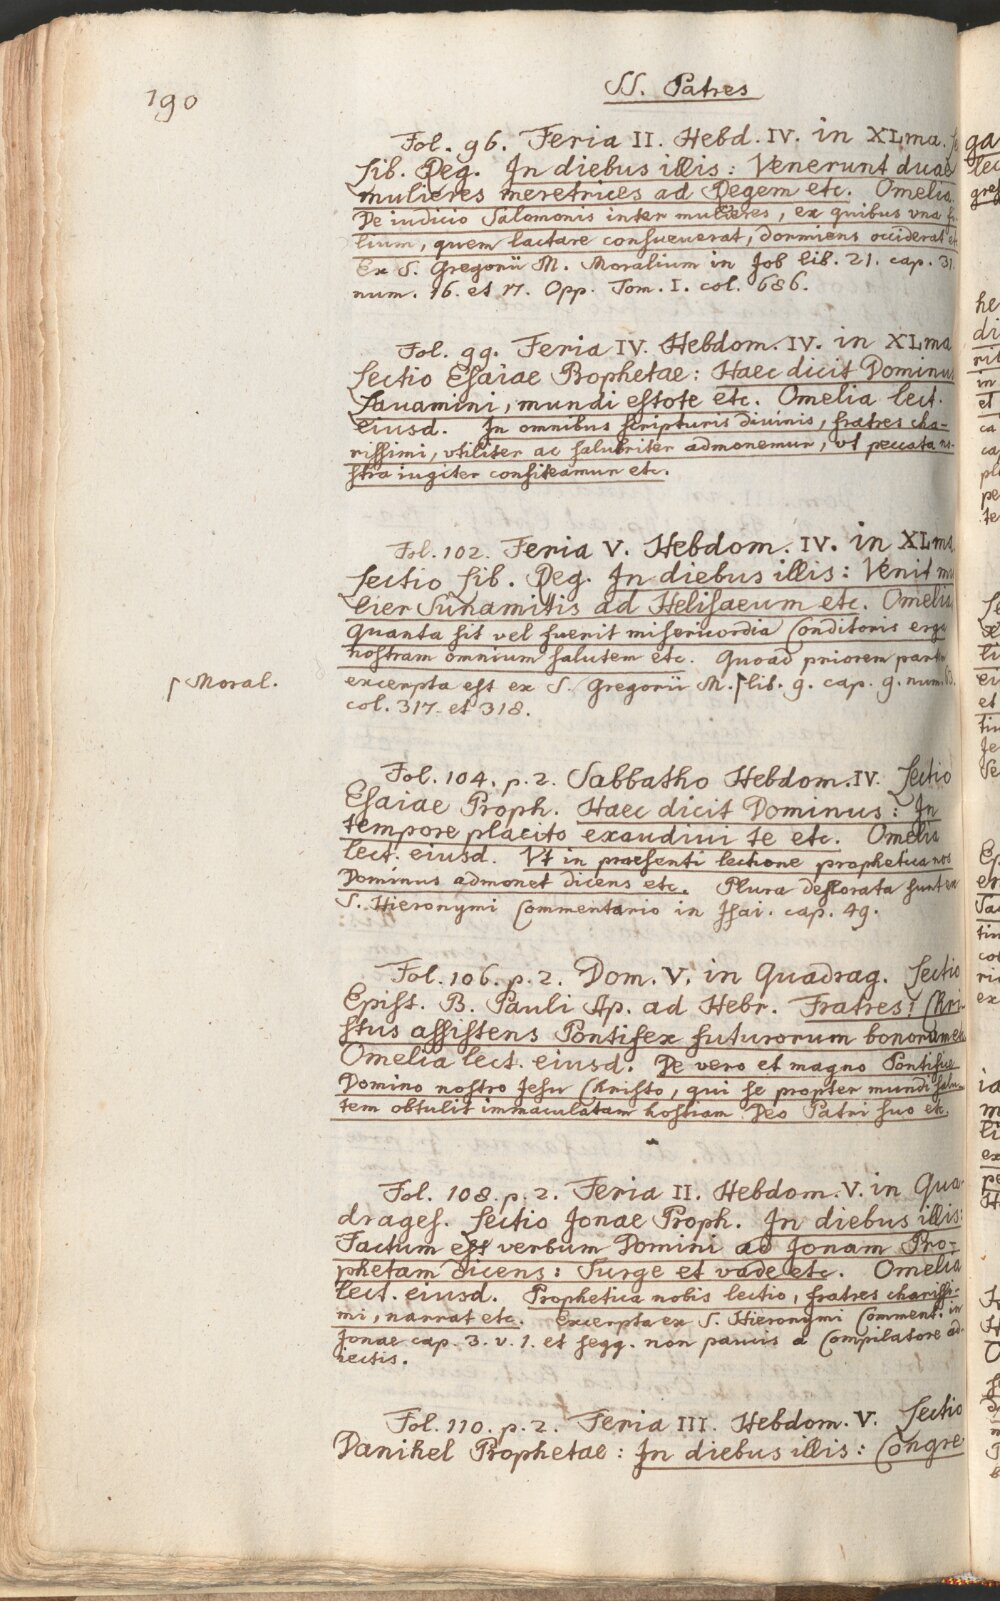 190
SS. Patres
Fol. 96. Feria II. Hebd. IV. in XLma.
Lib. Reg. In diebus illis: Venerunt duae
mulieres meretrices ad Regem etc. Omelia.
De iudicio Salomonis inter mulieres, ex quibus vna fi-
lium, quem lactare consueuerat, dormiens occiderat etc
Ex S. Gregorii M. Moralium in Job lib. 21. cap. 31
num. 16. et 17. Opp. Tom. I. col. 686.
Fol. 99. Feria IV. Hebdom. IV. in XLma
Lectio Esaiae Prophetae: Haec dicit Dominus
Lauamini, mundi estote etc. Omelia lect.
eiusd. In omnibus scripturis diuinis, fratres cha-
rissimi, vtiliter ac salubriter admonemur, vt peccata no-
stra iugiter confiteamur etc.
Fol. 102. Feria V. Hebdom. IV. in XLma
Lectio Lib. Reg. In diebus illis: Venit mu
lier Sunamitis ad Helisaeum etc. Omelia
Quanta sit vel fuerit misericordia Conditoris erga
nostram omnium salutem etc. Quoad priorem partem
excerpta est ex S. Gregorii M. ⌈ lib. 9. cap. 9. num.
⌈ Moral.
col. 317. et 318.
Fol. 104. p. 2. Sabbatho Hebdom. IV. Lectio
Esaiae Proph. Haec dicit Dominus: In
tempore placito exaudiui te etc. Omelia
lect. eiusd. Vt in praesenti lectione prophetica nos
Dominus admonet dicens etc. Plura deflorata sunt ex
S. Hieronymi Commentario in Jsai. cap. 49.
Fol. 106. p. 2. Dom. V. in Quadrag. Lectio
Epist. B. Pauli Ap. ad Hebr. Fratres! Chri-
stus assistens Pontifex futurorum bonorum etc
Omelia lect. eiusd. De vero et magno Pontifice
Domino nostro Jesu Christo, qui se propter mundi salu-
tem obtulit immaculatam hostiam Deo Patri suo etc.
Fol. 108. p. 2. Feria II. Hebdom. V. in Qua-
drages. Lectio Jonae Proph. In diebus illis:
Factum est verbum Domini ad Jonam Pro-
phetam dicens: Surge et vade etc. Omelia
lect. eiusd. Prophetica nobis lectio, fratres charissi-
mi, narrat etc. Excerpta ex S. Hieronymi Comment. in
Jonae cap. 3. v. 1. et seqq. non paucis a Compilatore ad-
iectis.
Fol. 110. p. 2. Feria III. Hebdom. V. Lectio
Danihel Prophetae: In diebus illis: Congre-